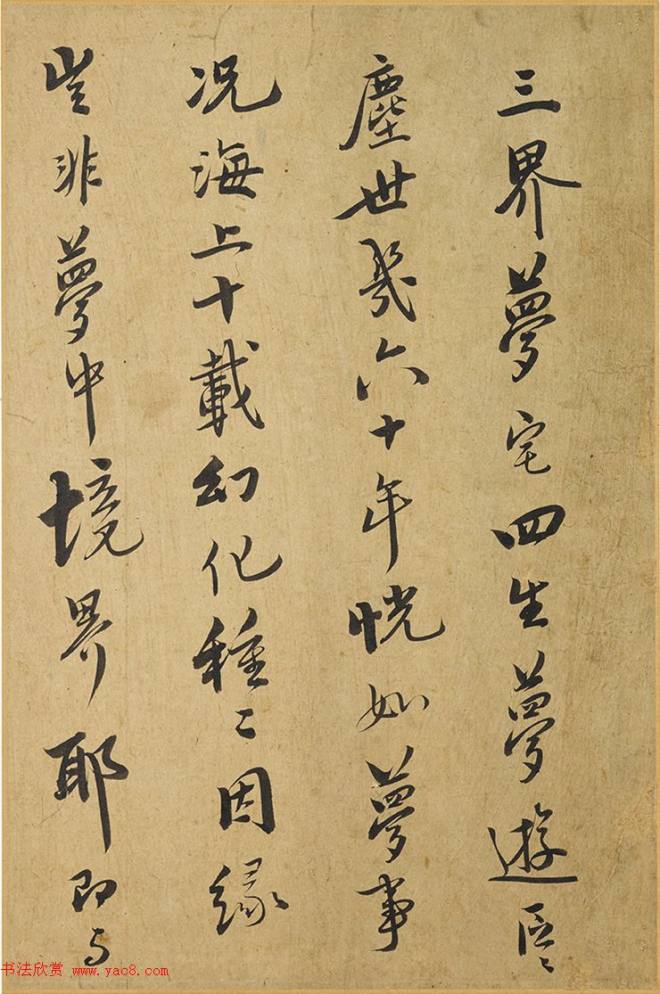 三界夢宅四生夢遊區〻
塵世幾六十年恍如夢事
况海上十載幻化種〻因緣
豈非夢中境界耶即与
书法欣赏 www.yac8.com